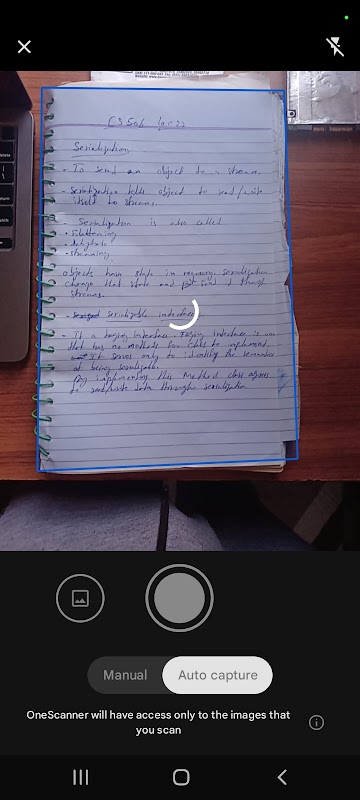 CS506 Lec 22
Serialization
- To send an object to a stream.
- Serialization tells object to send/write
itself to streams.
Serialization is also called
• Flattening
• dehydrate
• streaming
objects have state in memory serialization
change that state and send it through
streams.
- Serializable interface
- It a tagging interface. Tagging interface is one
that has no methods for class to implement
It serves only to identify the semantics
of being serializable.
By implementing this method class agrees
to send/write data through serialization
Manual
Auto capture
OneScanner will have access only to the images that
you scan